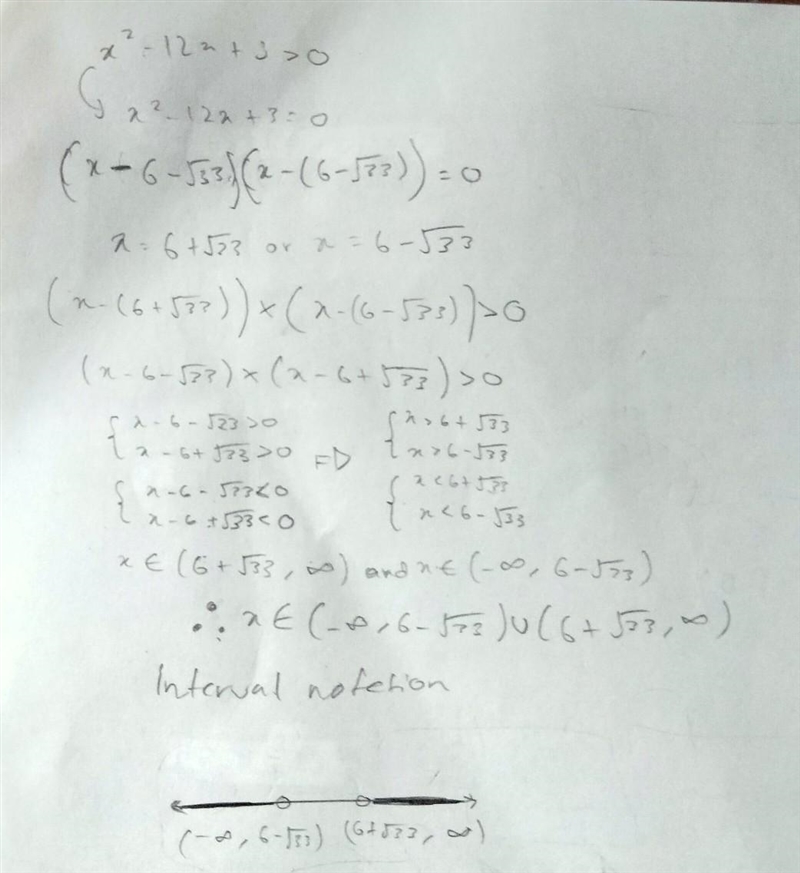 x² - 12x + 3 > 0
x² - 12x + 3 = 0
(x - 6 - √33)(x - (6 - √33)) = 0
x = 6 + √33 or x = 6 - √33
(x - (6 + √33)) × (x - (6 - √33)) > 0
(x - 6 - √33) × (x - 6 + √33) > 0
{ x - 6 - √33 > 0 { x > 6 + √33
{ x - 6 + √33 > 0 ⇒ { x > 6 - √33
{ x - 6 - √33 < 0 { x < 6 + √33
{ x - 6 + √33 < 0 { x < 6 - √33
x ∈ (6 + √33, ∞) and x ∈ (-∞, 6 - √33)
∴ x ∈ (-∞, 6 - √33) ∪ (6 + √33, ∞)
Interval notation
(-∞, 6 - √33) (6 + √33, ∞)